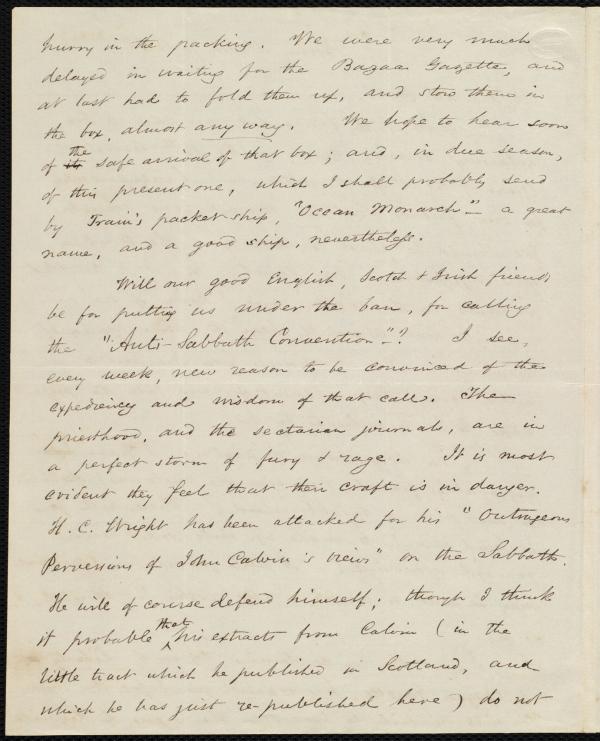 hurry in the packing. We were very much
delayed in waiting for the Bazaar Gazette, and
at last had to fold them up, and stow them in
the box, almost any way. We hope to hear soon
of the safe arrival of that box; and, in due season,
of this present one, which I shall probably send
by Train's packet ship, "Ocean Monarch" - a great
name, and a good ship, nevertheless.
Will our good English, Scotch & Irish friends
be for putting us under the ban, for calling
the "Anti-Sabbath Convention"-? I see,
every week, new reason to be convinced of the
expediency and wisdom of that call. The
priesthood, and the sectarian journals, are in
a perfect storm of fury & rage. It is most
evident they feel that their craft is in danger.
H. C. Wright has been attacked for his "Outrageous
Perversions of John Calvin's views" on the Sabbath.
He will of course defend himself; though I think
it probable that his extracts from Calvin (in the
little tract which he published in Scotland, and
which he has just re-published here) do not